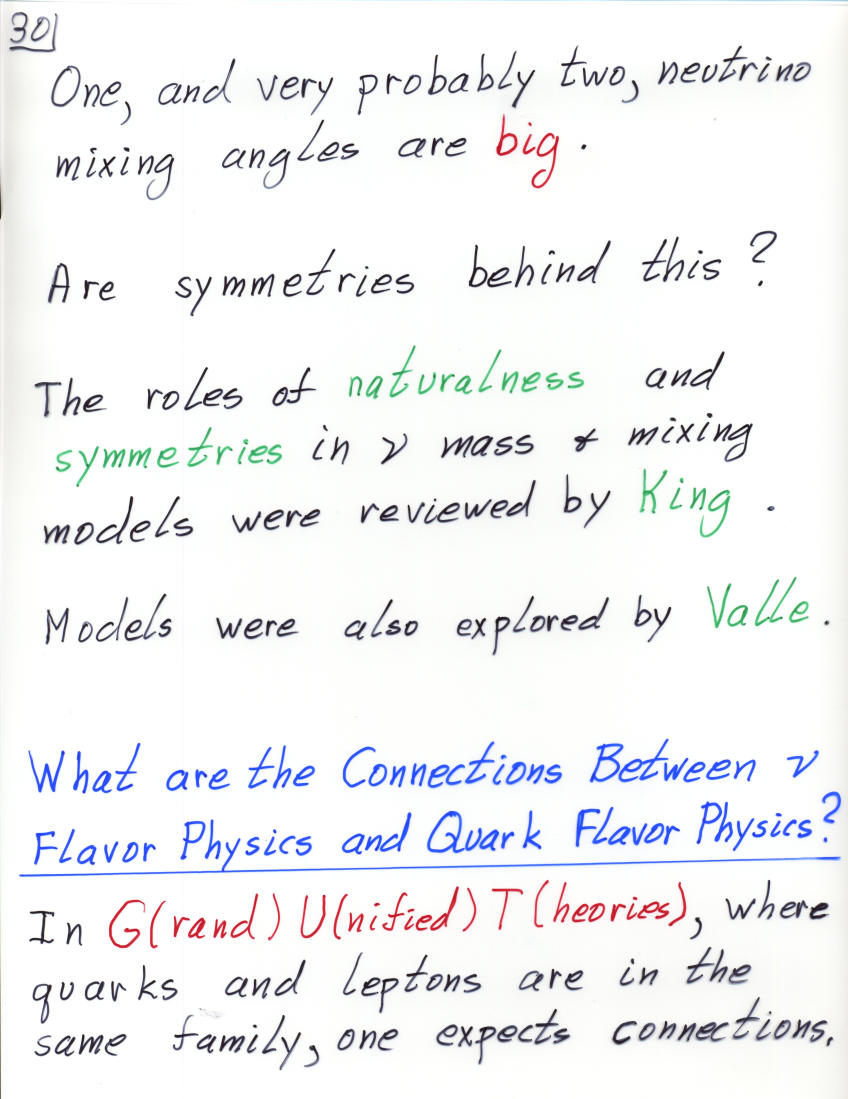 30
One, and very probably two, neutrino
mixing angles are big.
Are symmetries behind this?
The roles of naturalness and
symmetries in ν mass & mixing
models were reviewed by King.
Models were also explored by Valle.
What are the Connections Between ν
Flavor Physics and Quark Flavor Physics?
In G(rand) U(nified) T(heories), where
quarks and leptons are in the
same family, one expects connections.